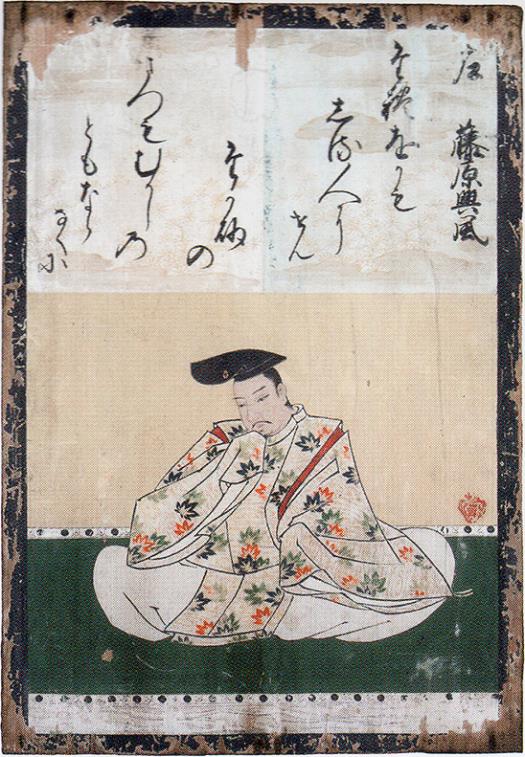 藤原興風
たれをかも
しる人に
せん
たか砂
の
まつもむかし
の
ともなら
なくに